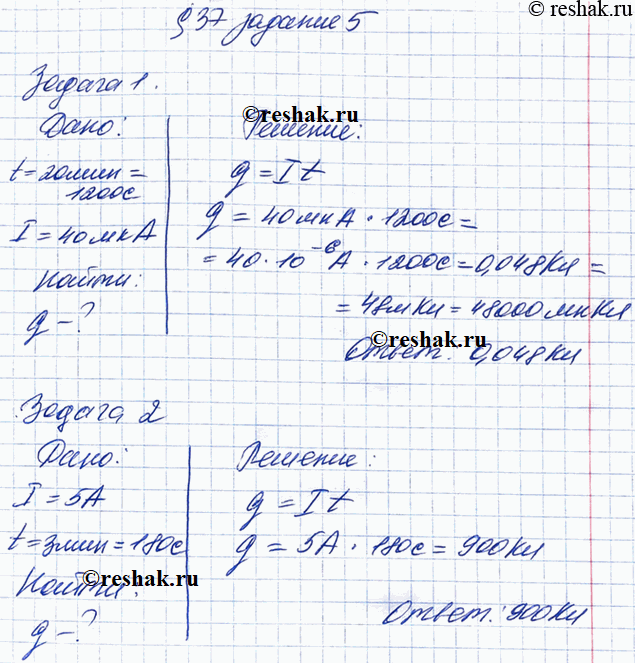 ©reshak.ru
§37 задание 5
Задача 1.
Дано:
t=20мин=
1200с
I=40мкА
Найти:
q-?
©reshak.ru
Решение:
q=It
q=40мкА·1200с=
=40·10⁻⁶А·1200с=0,048Кл=
=48мКл=48000мкКл
©reshak.ru
Ответ: 0,048Кл
Задача 2
Дано:
I=5А
t=3мин=180с
Найти:
©reshak.ru
q-?
Решение:
q=It
q=5А·180с=900Кл
Ответ: 900Кл